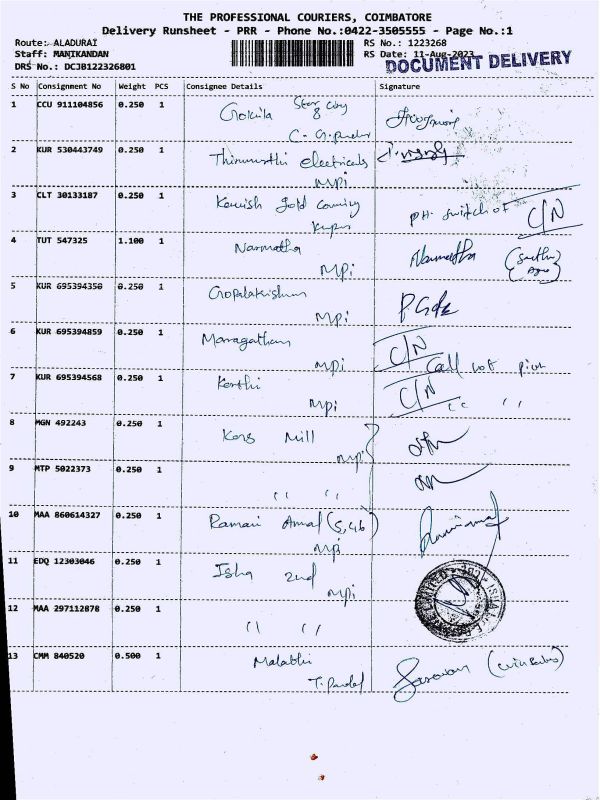 THE PROFESSIONAL COURIERS, COIMBATORE
Delivery Runsheet - PRR - Phone No.:0422-3505555 - Page No.:1
Route: ALADURAI RS No.: 1223268
Staff: MANIKANDAN RS Date: 11-Aug-2023
DRS No.: DCJB122326801 DOCUMENT DELIVERY
S No Consignment No Weight PCS Consignee Details Signature
1 CCU 911104856 0.250 1 Gokila Star city
8
2 KUR 530443749 0.250 1 Thirumurthi electricals
mpi
3 CLT 30133187 0.250 1 gold covering PH. switch of C/N
4 TUT 547325 1.100 1 Narmatha Narmatha
mpi
5 KUR 695394350 0.250 1 Gopalakrishnan
mpi
6 KUR 695394859 0.250 1 Maragatham C/N
mpi Call not
7 KUR 695394568 0.250 1 Keerthi C/N
mpi ‘‘ ‘‘
8 MGN 492243 0.250 1 Kors Mill
mpi
9 MTP 5022373 0.250 1
‘‘ ‘‘
10 MAA 860614327 0.250 1 Ramani
mpi
11 EDQ 12303046 0.250 1 Isha 2nd
mpi
12 MAA 297112878 0.250 1
‘‘ ‘‘
13 CMM 840520 0.500 1 Malathi Saravan